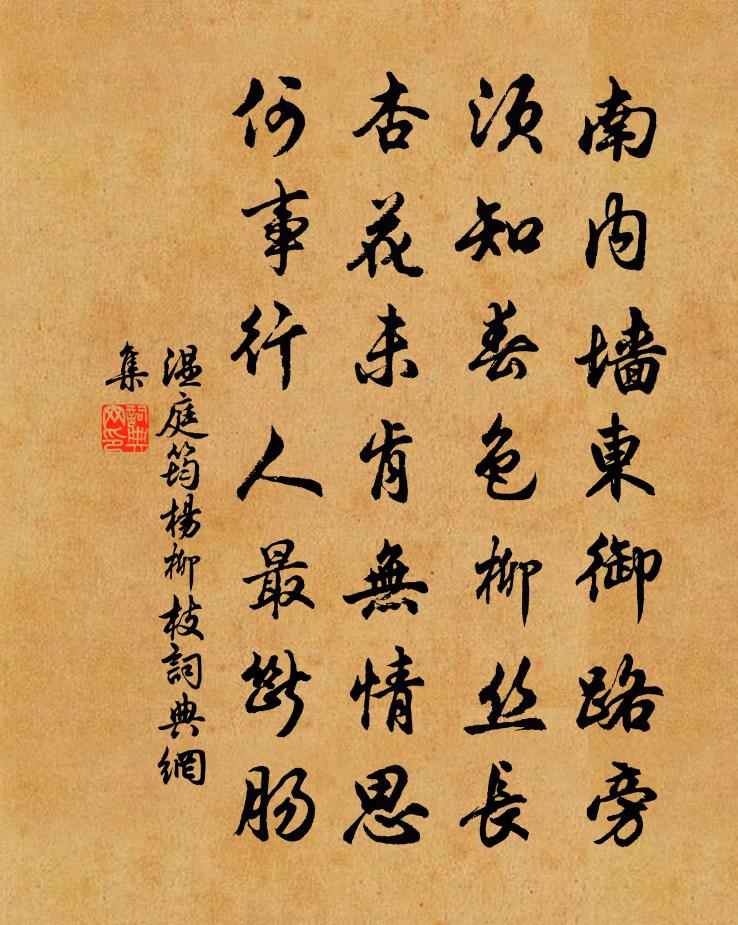 南内墙東御路旁
須知春色柳丝長
杏花未肯無情思
何事行人最断腸
温庭筠楊柳枝詞典網
集
詞典網印